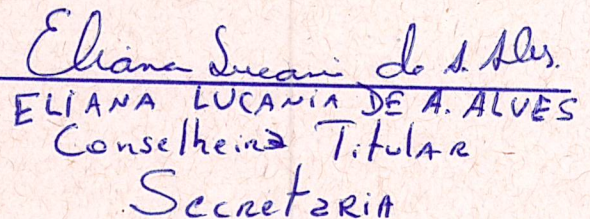 Eliana Lucania de A. Alves.
ELIANA LUCANIA DE A. ALVES
Conselheira Titular
Secretaria